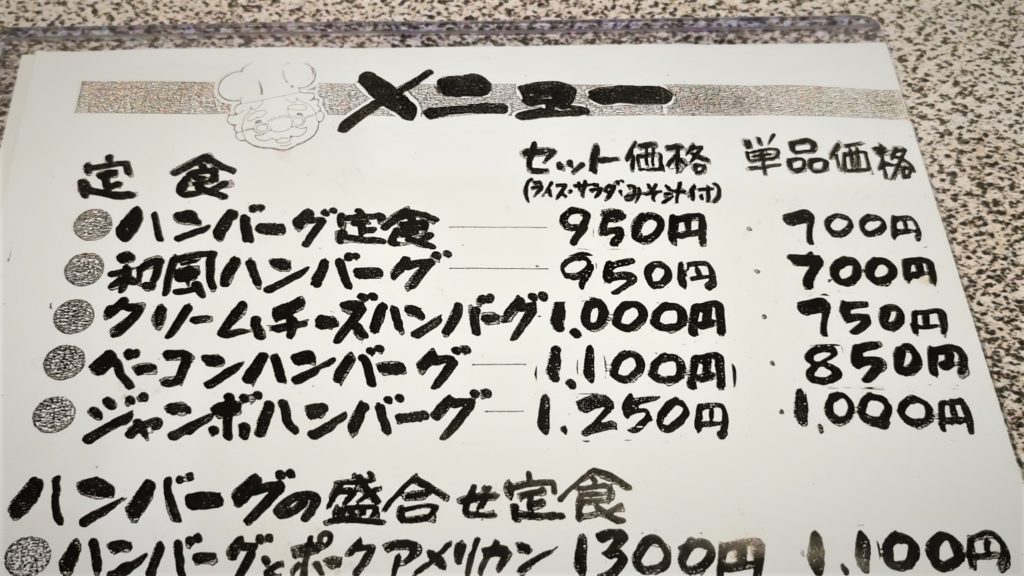 メニュー
定食 セット価格 単品価格
(ライス・サラダ・みそ汁付)
ハンバーグ定食 950円 700円
和風ハンバーグ 950円 700円
クリームチーズハンバーグ 1.000円 750円
ベーコンハンバーグ 1.100円 850円
ジャンボハンバーグ 1.250円 1.000円
ハンバーグの盛合せ定食
ハンバーグとポークアメリカン 1300円 1.100円